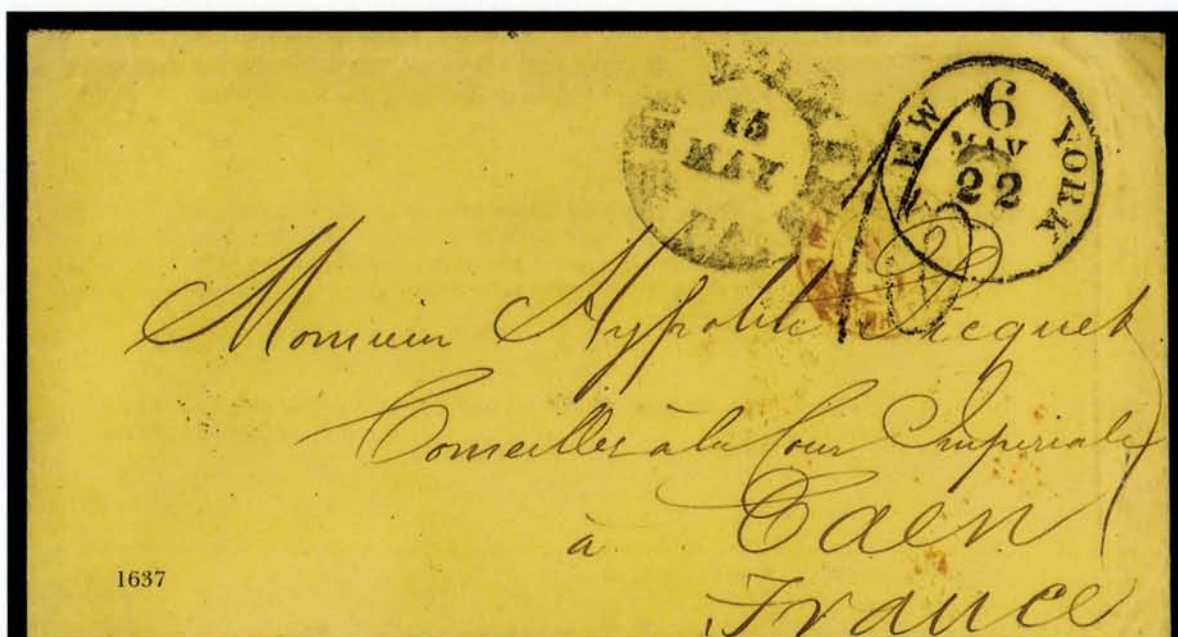 15
MAY
NEW YORK
6
MAY
22
Monsieur Hypolite Picquet
Conseiller à la Cour Imperiale
à Caen
France
1637